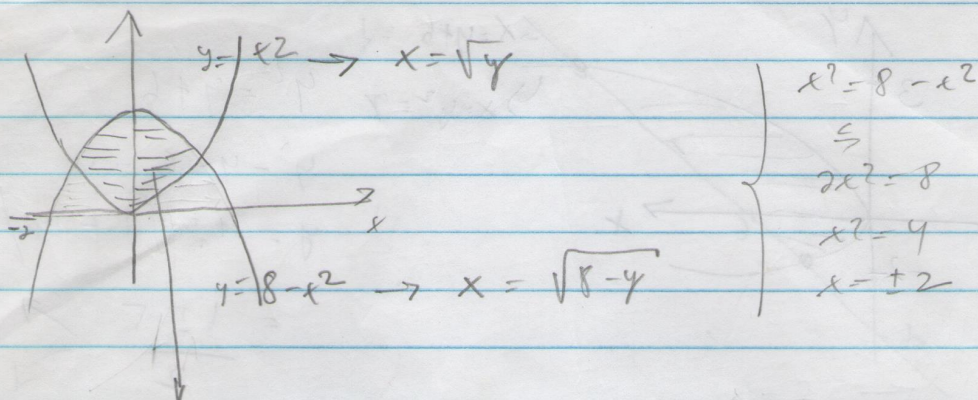 y = x2 → x = √y
-2
x
y = 8 - x² → x = √8-y
x² = 8 - x²
2x² = 8
x² = 4
x = ± 2